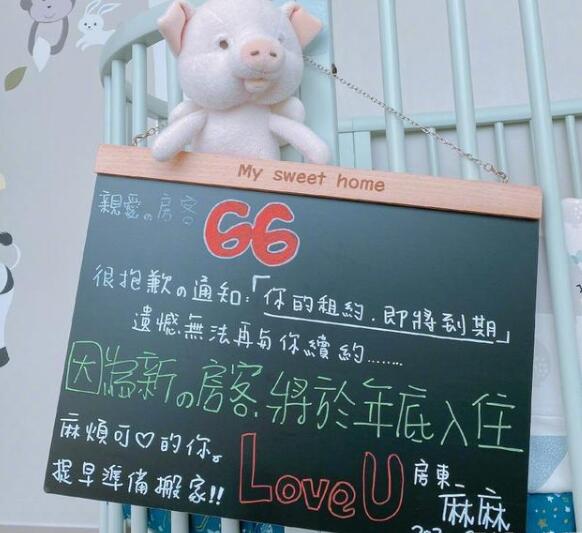 My sweet home
親愛の房客
66
很抱歉の通知:「你的租約.即將到期」
遺憾無法再與你續約........
因為新の房客.將於年底入住
麻煩可♡的你。
提早準備搬家!!
Love U
房東_
麻麻